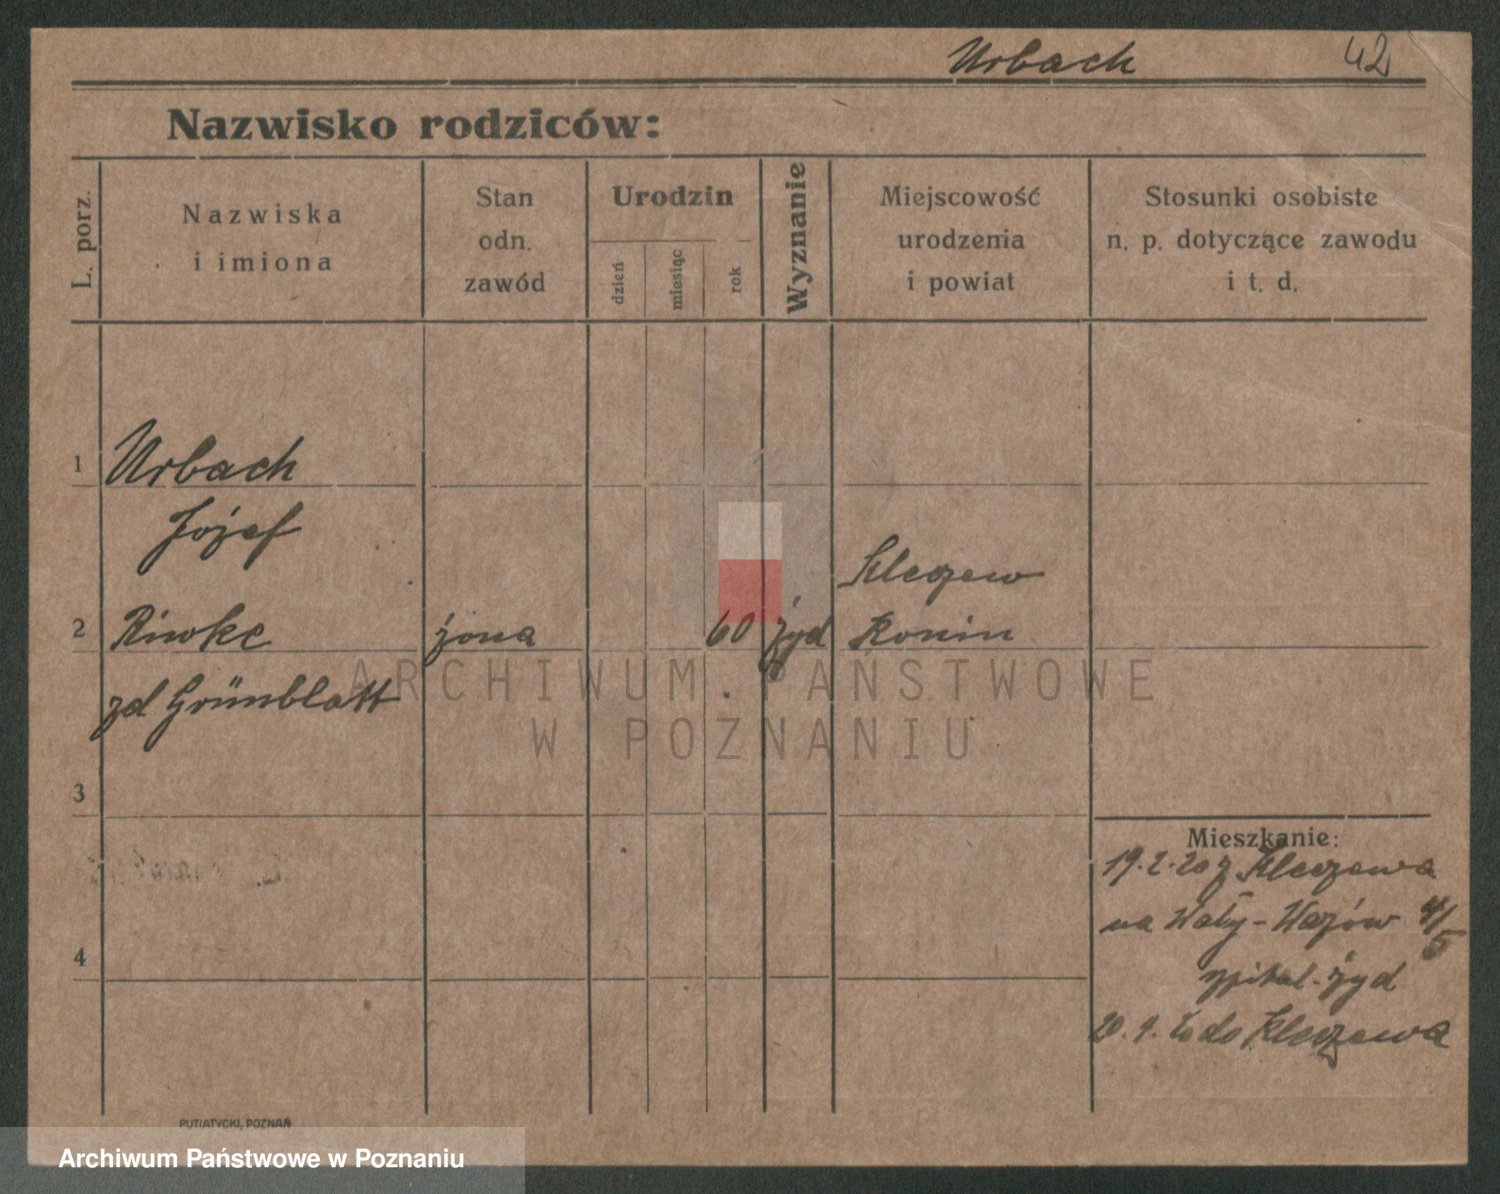 Urbach 42
Nazwisko rodziców:
L. porz.
Nazwiska
i imiona
Stan
odn.
zawód
Urodzin
dzień
miesiąc
rok
Wyznanie
Miejscowość
urodzenia
i powiat
Stosunki osobiste
n. p. dotyczące zawodu
i t. d.
1 Urbach
Józef
Kleczew
2 Riwke żona 60 żyd Konin
zd Grünblatt
ARCHIWUM PAŃSTWOWE
W POZNANIU
3
Mieszkanie:
19.2.20 z Kleczewa
na Wały-Wazów 4/5
szpital-żyd
4
20. 4. 20 do Kleczewa
PUTIATYCKI, POZNAŃ
Archiwum Państwowe w Poznaniu